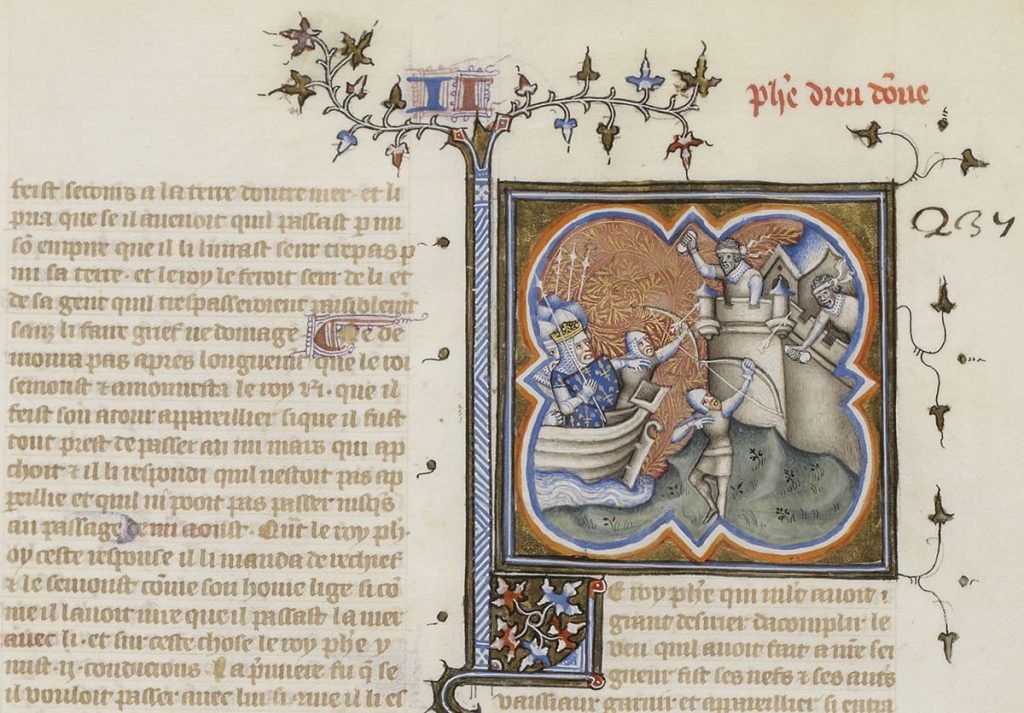 II
phe dieu done
234
feist secours a la terre doutremer et li
pria que se il avenoit quil passast p mi
so empire que il li livrast seur trespas p
mi sa terre. et le roy le feroit seur de li et
de sa gent quil trespasseroient paisiblemt
sanz li faire grief ne domage Ne de
moura pas apres longuemt que le roi
semonst & amonnesta le roy Ri. que il
feist son atour appareillier si que il fust
tout prest de passer au mi mars qui ap
choit & il li respondi quil nestoit pas ap
pareillie et quil ni pooit pas passer jusqs
au passage de mi aoust. Qnt le roy ph.
oy ceste response il li manda de rechief
& le semonst come son home lige si co
me il lavoit jure que il passast la mer
avec li. et sur ceste chose le roy phe y
mist .ij. condicions La pmiere fu q se
il vouloit passer avec lui si que il li es
Le roy phe qui mlt avoit
grant desirier dacomplir le
veu quil avoit fait a nre sei
gneur fist ses nefs & ses autres
vaissiaux garnir et appareillier si entra